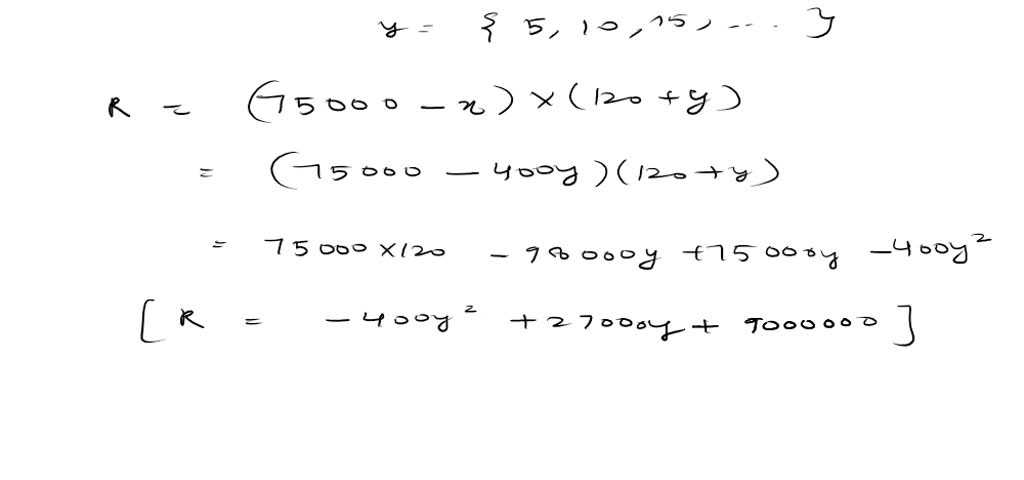 y = { 5, 10, 15, ... }
R = (75000 - x) × (120 + y)
= (75000 - 400y)(120 + y)
= 75000 × 120 - 98000y + 75000y - 400y²
[ R = - 400y² + 27000y + 9000000 ]